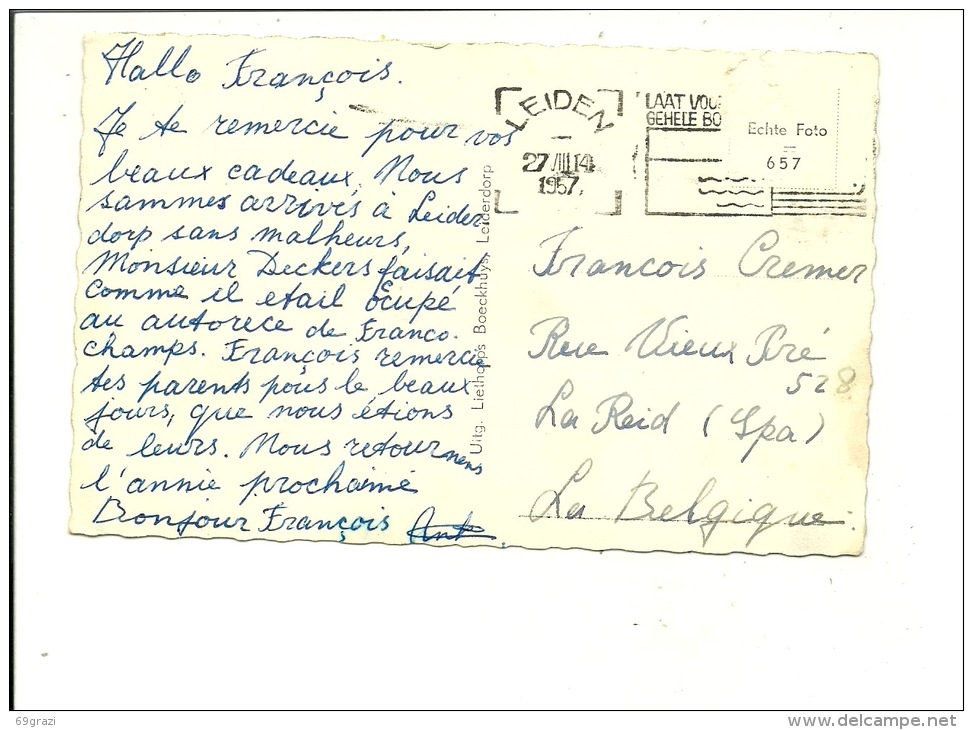 Hallo François.
Je te remercie pour vos
beaux cadeaux. Nous
sammes arrivés à Leider
dorp sans malheurs,
Monsieur Deckers faisait
comme il etail Ocupé
au autorece de Franco-
champs. François remercie
tes parents pous le beaux
jours, que nous étions
de leurs. Nous retournens
l'annie prochainie
Bonjour François Ant
Uitg. Liethopps Boeckhuys, Leiderdorp
LEIDEN
27 III 14
1957
LAAT VOU
GEHELE BO
Echte Foto
657
Francois Cremer
Rue Vieux Pré
528
La Reid (Spa)
La Belgique.
69grazi
www.delcampe.net